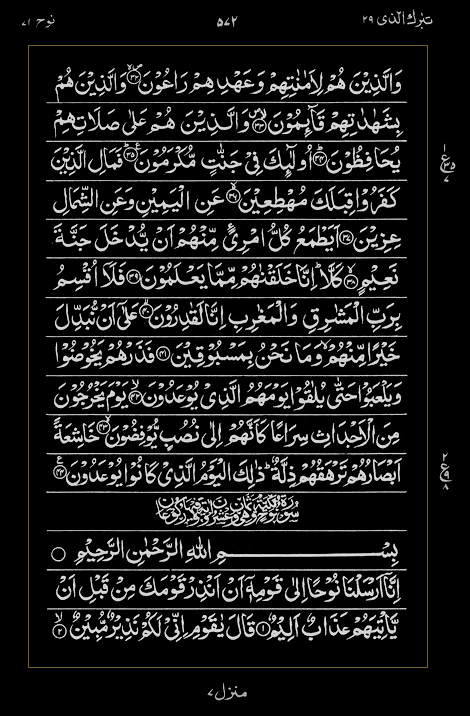 تبٰرك الذی ۲۹
۵۷۲
نوح ۷۱
وَالَّذِيْنَ هُمْ لِاَمٰنٰتِهِمْ وَعَهْدِهِمْ رٰعُوْنَ ۳۲ وَالَّذِيْنَ هُمْ
بِشَهٰدٰتِهِمْ قَآئِمُوْنَ ۳۳ وَالَّذِيْنَ هُمْ عَلٰى صَلَاتِهِمْ
يُحَافِظُوْنَ ۳۴ اُولٰٓئِكَ فِيْ جَنّٰتٍ مُّكْرَمُوْنَ ۳۵ فَمَالِ الَّذِيْنَ
كَفَرُوْا قِبَلَكَ مُهْطِعِيْنَ ۳۶ عَنِ الْيَمِيْنِ وَعَنِ الشِّمَالِ
عِزِيْنَ ۳۷ اَيَطْمَعُ كُلُّ امْرِئٍ مِّنْهُمْ اَنْ يُّدْخَلَ جَنَّةَ
نَعِيْمٍ ۳۸ كَلَّا اِنَّا خَلَقْنٰهُمْ مِّمَّا يَعْلَمُوْنَ ۳۹ فَلَآ اُقْسِمُ
بِرَبِّ الْمَشٰرِقِ وَالْمَغٰرِبِ اِنَّا لَقٰدِرُوْنَ ۴۰ عَلٰٓى اَنْ نُّبَدِّلَ
خَيْرًا مِّنْهُمْ وَمَا نَحْنُ بِمَسْبُوْقِيْنَ ۴۱ فَذَرْهُمْ يَخُوْضُوْا
وَيَلْعَبُوْا حَتّٰى يُلٰقُوْا يَوْمَهُمُ الَّذِيْ يُوْعَدُوْنَ ۴۲ يَوْمَ يَخْرُجُوْنَ
مِنَ الْاَجْدَاثِ سِرَاعًا كَاَنَّهُمْ اِلٰى نُصُبٍ يُّوْفِضُوْنَ ۴۳ خَاشِعَةً
اَبْصَارُهُمْ تَرْهَقُهُمْ ذِلَّةٌ ذٰلِكَ الْيَوْمُ الَّذِيْ كَانُوْا يُوْعَدُوْنَ ۴۴
بِسْمِ اللهِ الرَّحْمٰنِ الرَّحِيْمِ
اِنَّآ اَرْسَلْنَا نُوْحًا اِلٰى قَوْمِهٖٓ اَنْ اَنْذِرْ قَوْمَكَ مِنْ قَبْلِ اَنْ
يَّاْتِيَهُمْ عَذَابٌ اَلِيْمٌ ۱ قَالَ يٰقَوْمِ اِنِّيْ لَكُمْ نَذِيْرٌ مُّبِيْنٌ ۲
۱
ع ۳۵
۷
۲
ع ۹
۸
منزل ۷